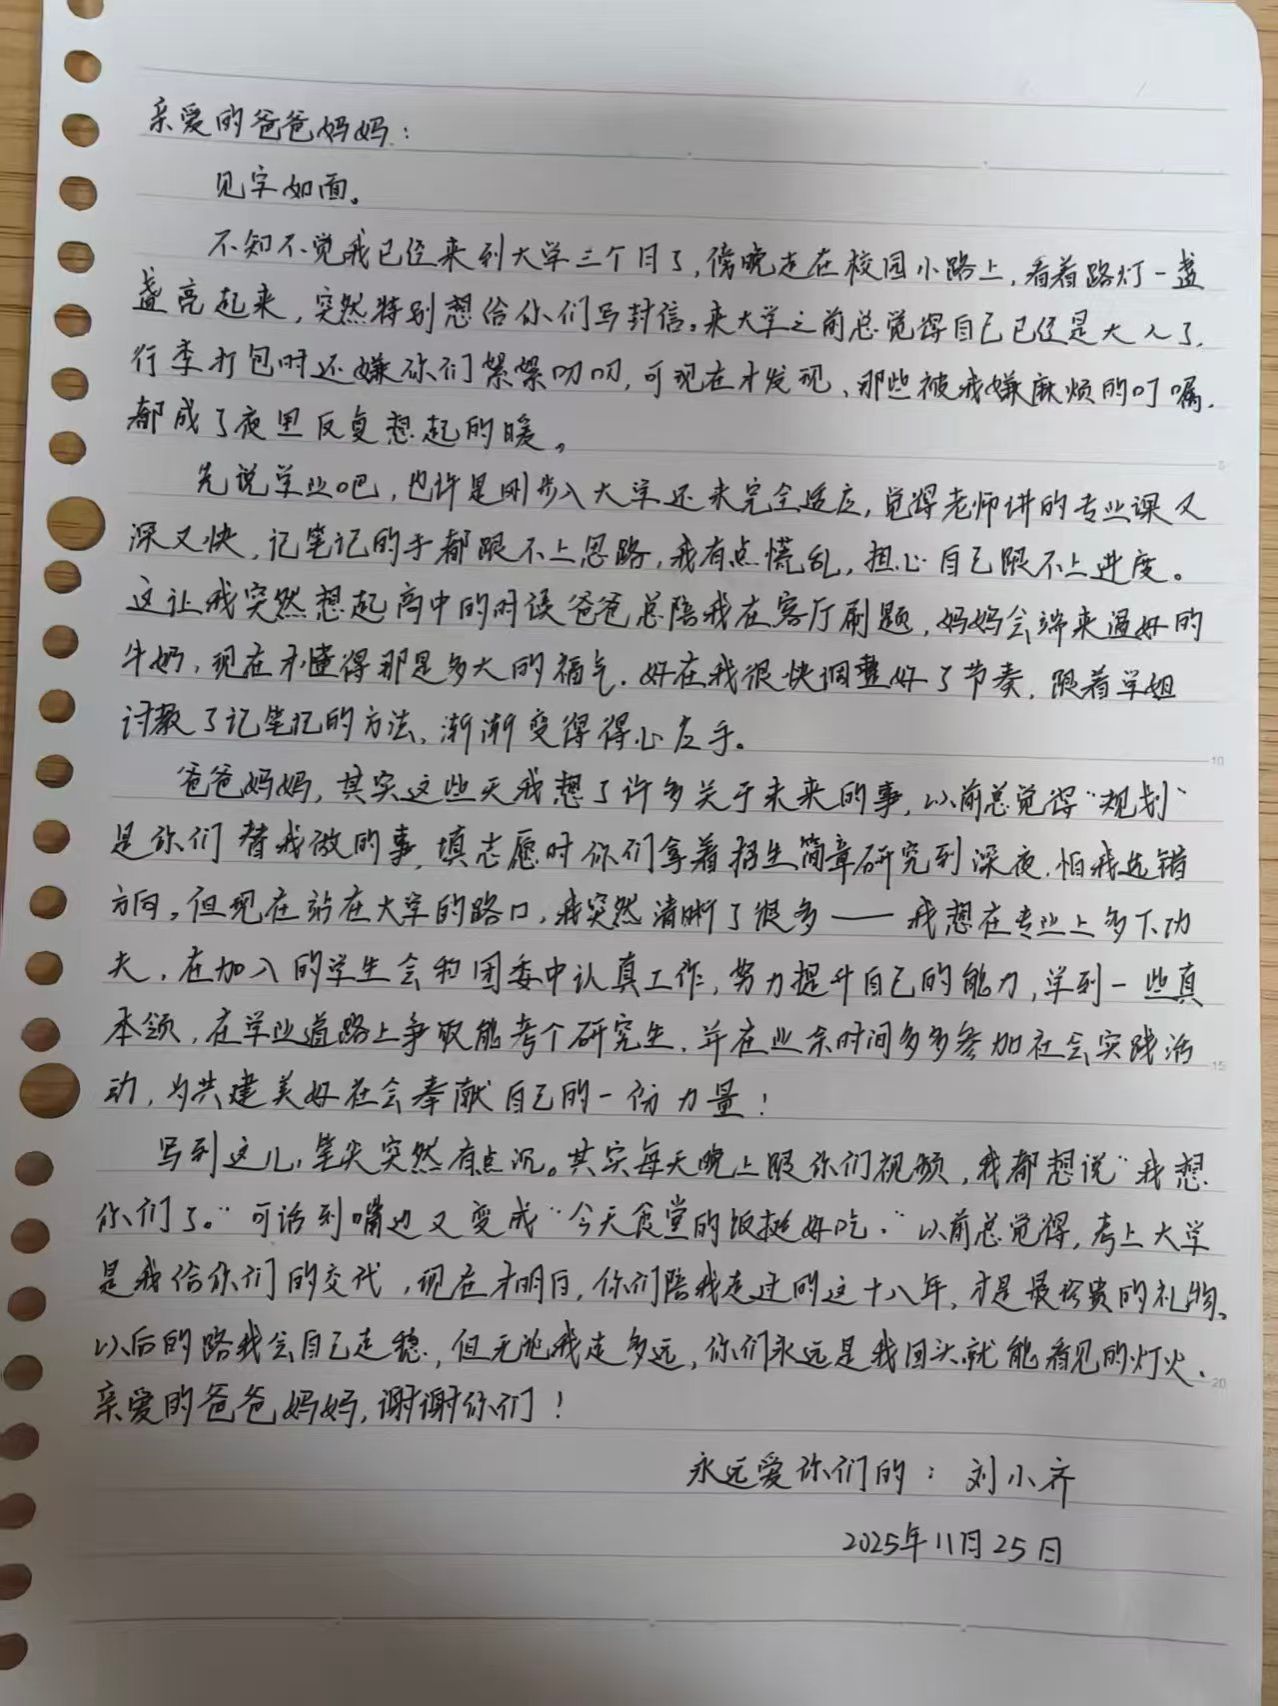 亲爱的爸爸妈妈：
见字如面。
不知不觉我已经来到大学三个月了，傍晚走在校园小路上，看着路灯一盏
盏亮起来，突然特别想给你们写封信。来大学之前总觉得自己已经是大人了，
行李打包时还嫌你们絮絮叨叨，可现在才发现、那些被我嫌麻烦的叮嘱，
都成了夜里反复想起的暖。
先说学业吧，也许是刚步入大学还未完全适应，觉得老师讲的专业课又
深又快，记笔记的手都跟不上思路，我有点慌乱，担心自己跟不上进度。
这让我突然想起高中的时候爸爸总陪我在客厅刷题，妈妈会端来温好的
牛奶，现在才懂得那是多大的福气。好在我很快调整好了节奏，跟着学姐
讨教了记笔记的方法，渐渐变得得心应手。
爸爸妈妈，其实这些天我想了许多关于未来的事，以前总觉得“规划”
是你们替我做的事，填志愿时你们拿着招生简章研究到深夜，怕我选错
方向。但现在站在大学的路口，我突然清晰了很多——我想在专业上多下功
夫，在加入的学生会和团委中认真工作，努力提升自己的能力，学到一些真
本领，在学业道路上争取能考个研究生，并在业余时间多多参加社会实践活
动，为共建美好社会奉献自己的一份力量！
写到这儿，笔尖突然有点沉。其实每天晚上跟你们视频，我都想说“我想
你们了。”可话到嘴边又变成“今天食堂的饭挺好吃.”以前总觉得，考上大学
是我给你们的交代，现在才明白，你们陪我走过的这十八年，才是最珍贵的礼物。
以后的路我会自己走稳，但无论我走多远，你们永远是我回头就能看见的灯火.
亲爱的爸爸妈妈，谢谢你们！
永远爱你们的：刘小齐
2025年11月25日